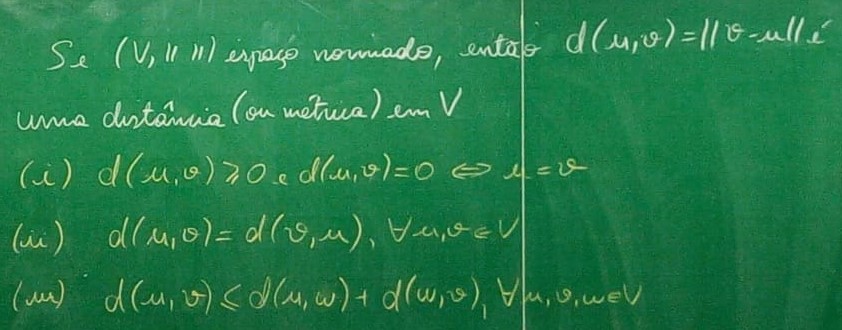 Se (V, || ||) espaço normado, então d(u,v)=||v-u|| é
uma distância (ou métrica) em V
(i) d(u,v)⩾0 e d(u,v)=0 ⇔ u=v
(ii) d(u,v)=d(v,u), ∀u,v∈V
(iii) d(u,v)≤d(u,w)+d(w,v), ∀u,v,w∈V